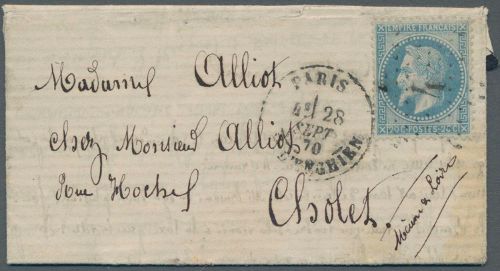 EMPIRE FRANÇAIS
Madame Alliot
PARIS
4E/ 28
SEPT
70
R. D'ENGHIEN
20 C POSTES 20 C
Chez Monsieur Alliot
Rue Hoche
Cholet
Maine & Loire